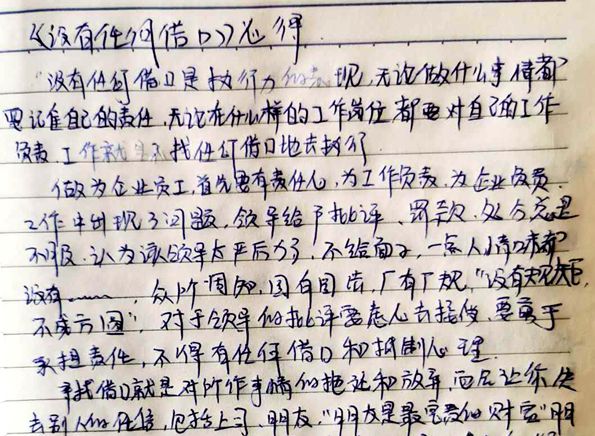 《没有任何借口》心得
"没有任何借口是执行力的表现,无论做什么事情都
要记住自己的责任,无论在什么样的工作岗位都要对自己的工作
负责,工作就是不找任何借口地去执行
做为企业员工,首先要有责任心,为工作负责,为企业负责.
工作中出现了问题,领导给予批评、罚款、处分总是
不服,认为该领导太严厉了,不给面子,一点人情味都
没有……,众所周知,国有国法,厂有厂规,"没有规矩,
不成方圆",对于领导的批评要虚心去接受,要勇于
承担责任,不得有任何借口和抵制心理.
寻找借口就是对所作事情的拖延和放弃,而且让你失
去别人的信任,包括上司、朋友,"朋友是最宝贵的财富"朋